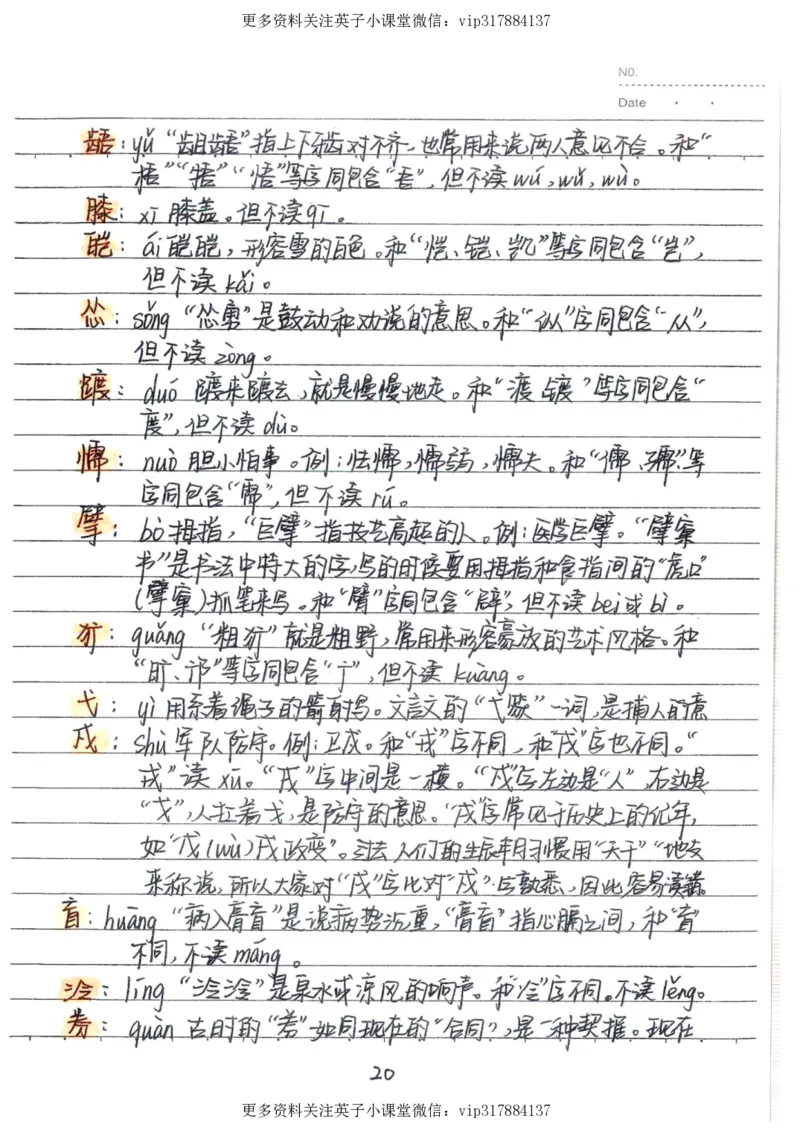 更多资料关注英子小课堂微信：vip317884137
NO.
Date
龉：yǔ “龃龉”指上下牙齿对不齐，也常用来说两人意见不合。和“
梧”“牾”“悟”等字同包含“吾”，但不读wú，wǔ，wù。
膝：xī 膝盖。但不读qī。
皑：ái 皑皑，形容雪的白色。和“恺、铠、凯”等字同包含“岂”，
但不读kǎi。
怂：sǒng “怂恿”是鼓动和劝说的意思。和“纵”字同包含“从”，
但不读zòng。
踱：duó 踱来踱去，就是慢慢地走。和“渡 镀”等字同包含“
度”，但不读dù。
懦：nuò 胆小怕事。例：怯懦，懦弱，懦夫。和“儒、孺”等
字同包含“需”，但不读rú。
擘：bò 拇指，“巨擘”指技艺高超的人。例：医学巨擘。“擘窠
书”是书法中特大的字，写的时候要用拇指和食指间的“虎口”
（擘窠）抓笔来写。和“臂”字同包含“辟”，但不读bei或bì。
犷：guǎng “粗犷”就是粗野，常用来形容豪放的艺术风格。和
“旷、邝”等字同包含“广”，但不读kuàng。
弋：yì 用系着绳子的箭射鸟。文言文的“弋猨”一词，是捕人的意
戍：shù 军队防守。例：卫戍。和“戎”字不同，和“戌”字也不同。“
戌”读xū。“戌”字中间是一横。“戍”字左边是“人”，右边是
“戈”，人拉着戈，是防守的意思。“戌”字常见于历史上的纪年，
如“戊(wù)戌政变”。过去人们的生辰年月习惯用“天干”“地支
来称说，所以大家对“戌”字比对“戍”字熟悉，因此容易读错。
肓：huāng “病入膏肓”是说病势沉重，“膏肓”指心膈之间，和“盲”
不同，不读máng。
泠：líng “泠泠”是泉水或凉风的响声。和“冷”字不同。不读lěng。
券：quàn 古时的“券”如同现在的“合同”，是一种契据。现在
20
更多资料关注英子小课堂微信：vip317884137